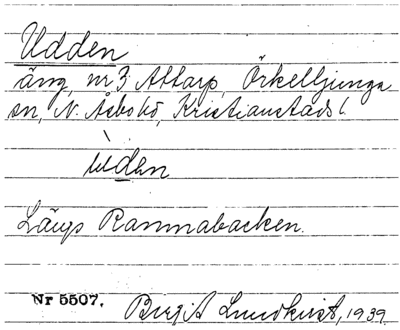 Udden
äng, nr 3 Attarp, Örkelljunga
sn, N. Åsbo hd, Kristianstads l.
ùden
Längs Rammabacken.
Nr 5507. Birgit Lundkvist, 1939.